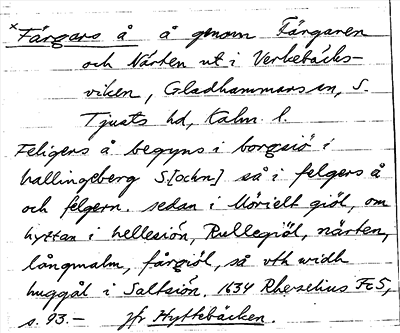 x Färgars å å genom Färgaren
och Närten ut i Verkebäcks-
viken, Gladhammars sn, S.
Tjusts hd, Kalm l.
Feligers å begyns i borgsiö i
hallingeberg S[ochn] så i felgers å
och felgern. sedan i Mörielt giöl, om
hyttan i hellesión, Rullegiöl, närten,
långmalm, fårgiöl, så vth widh
huggål i Saltsión. 1634 Rhezelius Fc5,
s. 93.— jfr Hyttebäcken.